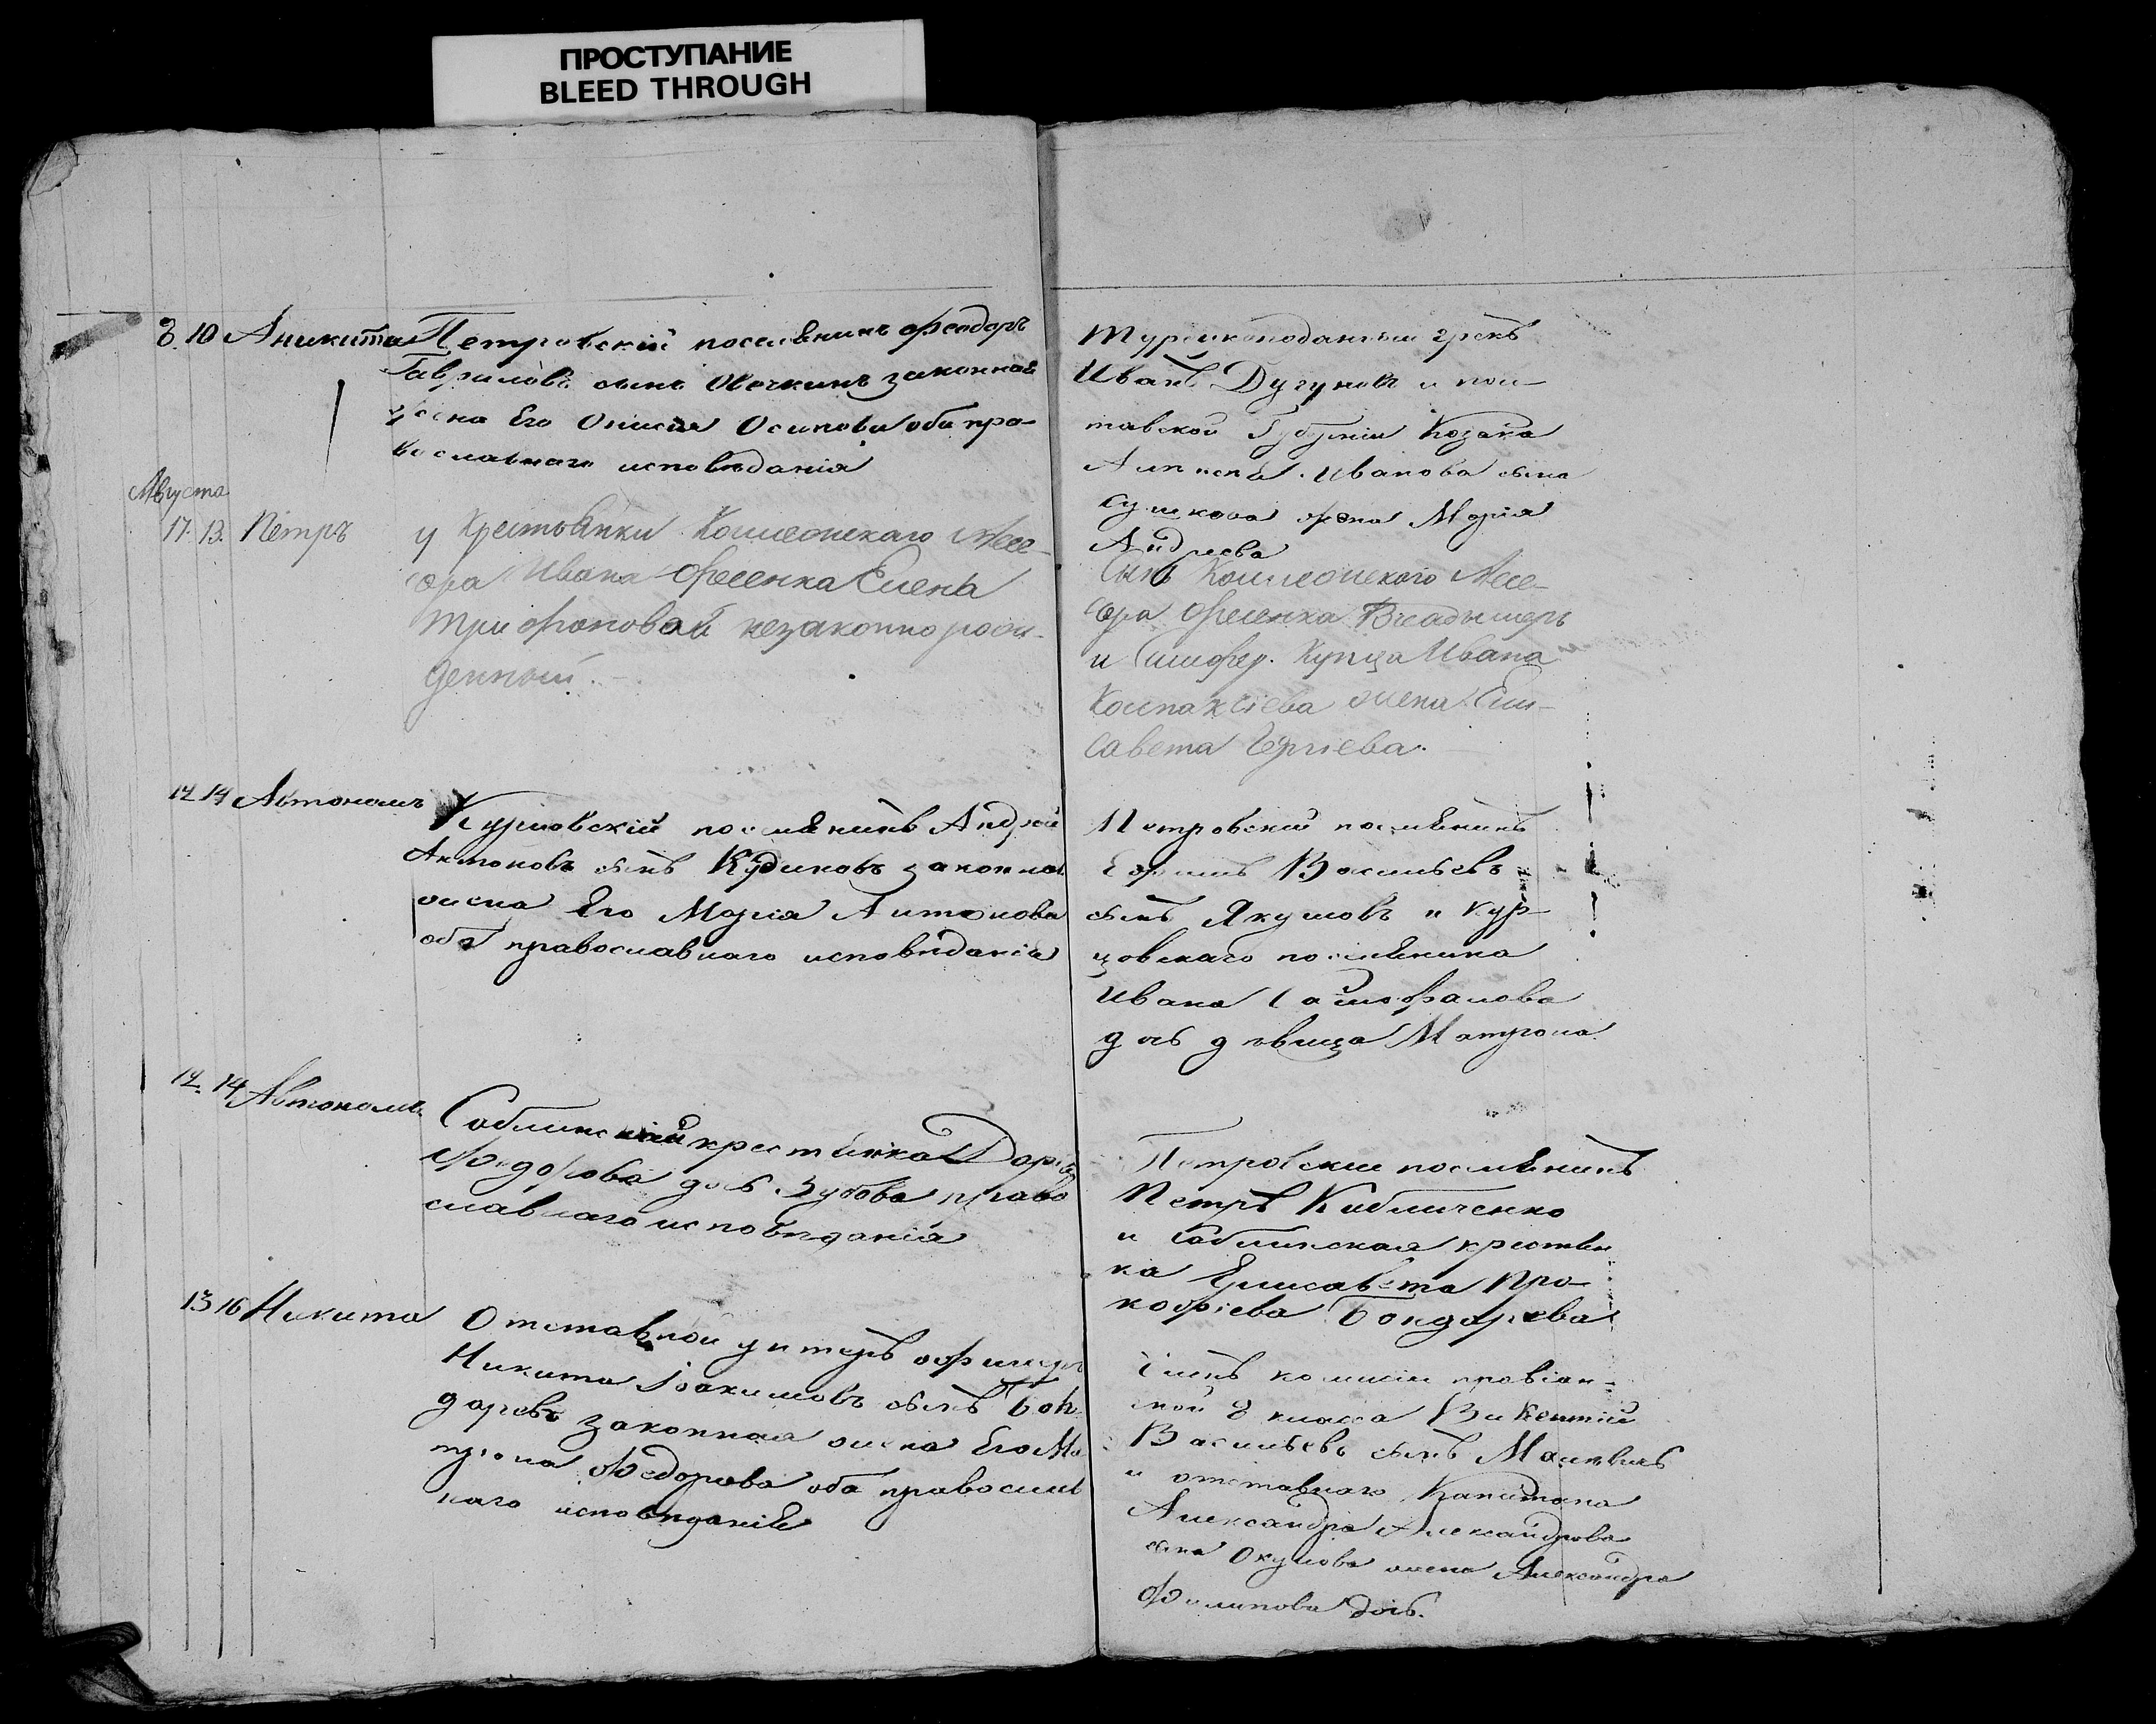 ПРОСТУПАНИЕ
BLEED THROUGH
8. 10 Аникита Петровскій поселянинъ Феодоръ
Гавриловъ сынъ Овечкинъ законная
жена Его Онисія Осипова оба пра-
вославнаго исповѣданія
Августа
17. 13. Петръ у Крестьянки Коллежскаго Ассе-
сора Ивана Фесенка Елена
Трифоновой незаконно рож-
денный.
12 14 Автономъ Курцовскій поселянинъ Андрей
Антоновъ сынъ Кудиновъ законная
жена Его Марія Антонова
оба православнаго исповѣданія
12. 14 Автономъ Саблинская крестьянка Дарія
Федорова дочь Зубова право
славнаго исповѣданія
13 16 Никита Отставной унтеръ офицеръ
Никита Іоакимовъ сынъ Бон
даревъ законная жена Его Ма
трона Федорова оба православ
наго исповѣданія
Турецкоподанный грекъ
Иванъ Дугуновъ и пол-
тавской Губерніи Козака
Ивапова сына
Сушкова жена Марія
Андреева
Сынъ Коллежскаго Ассе-
сора Фесенка Владымеръ
и Симфер. Купца Ивана
жена Ели-
савета
Петровский поселянинъ
Ефимъ Васильевъ
сынъ Якумовъ и Кур-
цовскаго поселянина
Ивана
дочь дѣвица Матрона
Петровский поселянинъ
Петръ Кибличенко
и Саблинская крестьян
ка Елисавета Про-
кофіева Бондарева
комисіи провіан-
ской 8 класса Викентій
Васильевъ сынъ
и отставнаго Капитана
Александра Александрова
сына Окулова жена Александра
Филипова дочь.